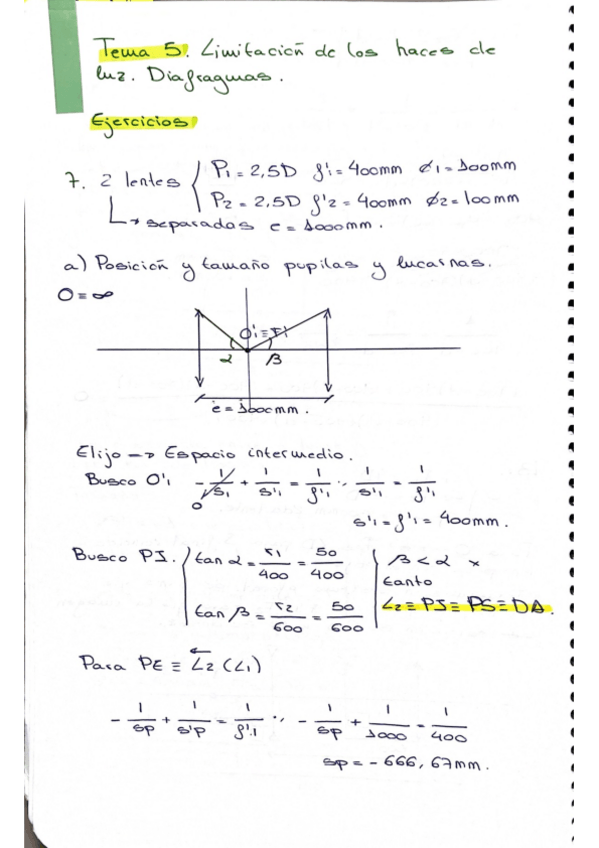 Tema 5. Limitación de los haces de
luz. Diafragmas.
Ejercicios
7. 2 lentes { P1 = 2,5D f'1 = 400mm ∅1 = 100mm
P2 = 2,5D f'2 = 400mm ∅2 = 100mm
↳ separados e = 1000mm.
a) Posición y tamaño pupilas y lucarnas.
O = ∞
O'1 = F'1
α β
e = 1000mm.
Elijo → Espacio intermedio.
Busco O'1 - 1/s1 + 1/s'1 = 1/f'1 ∵ 1/s'1 = 1/f'1
0
s'1 = f'1 = 400mm.
Busco PI. tan α = r1/400 = 50/400 | β < α x
tanto
tan β = r2/600 = 50/600 | L2 ≡ PI ≡ PS ≡ DA.
Para PE ≡ L2 (L1)
- 1/sp + 1/s'p = 1/f'1 ∵ - 1/sp + 1/1000 = 1/400
sp = - 666,67mm.